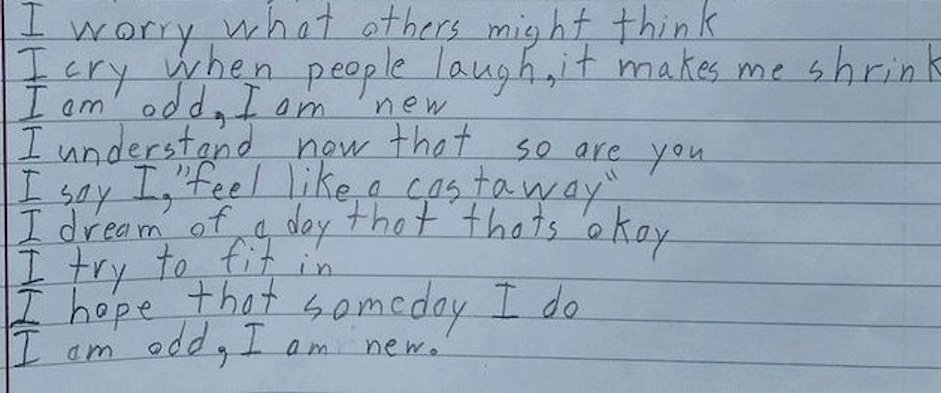 I worry what others might think
I cry when people laugh, it makes me shrink
I am odd, I am new
I understand now that so are you
I say I, "feel like a castaway"
I dream of a day that thats okay
I try to fit in
I hope that someday I do
I am odd, I am new.